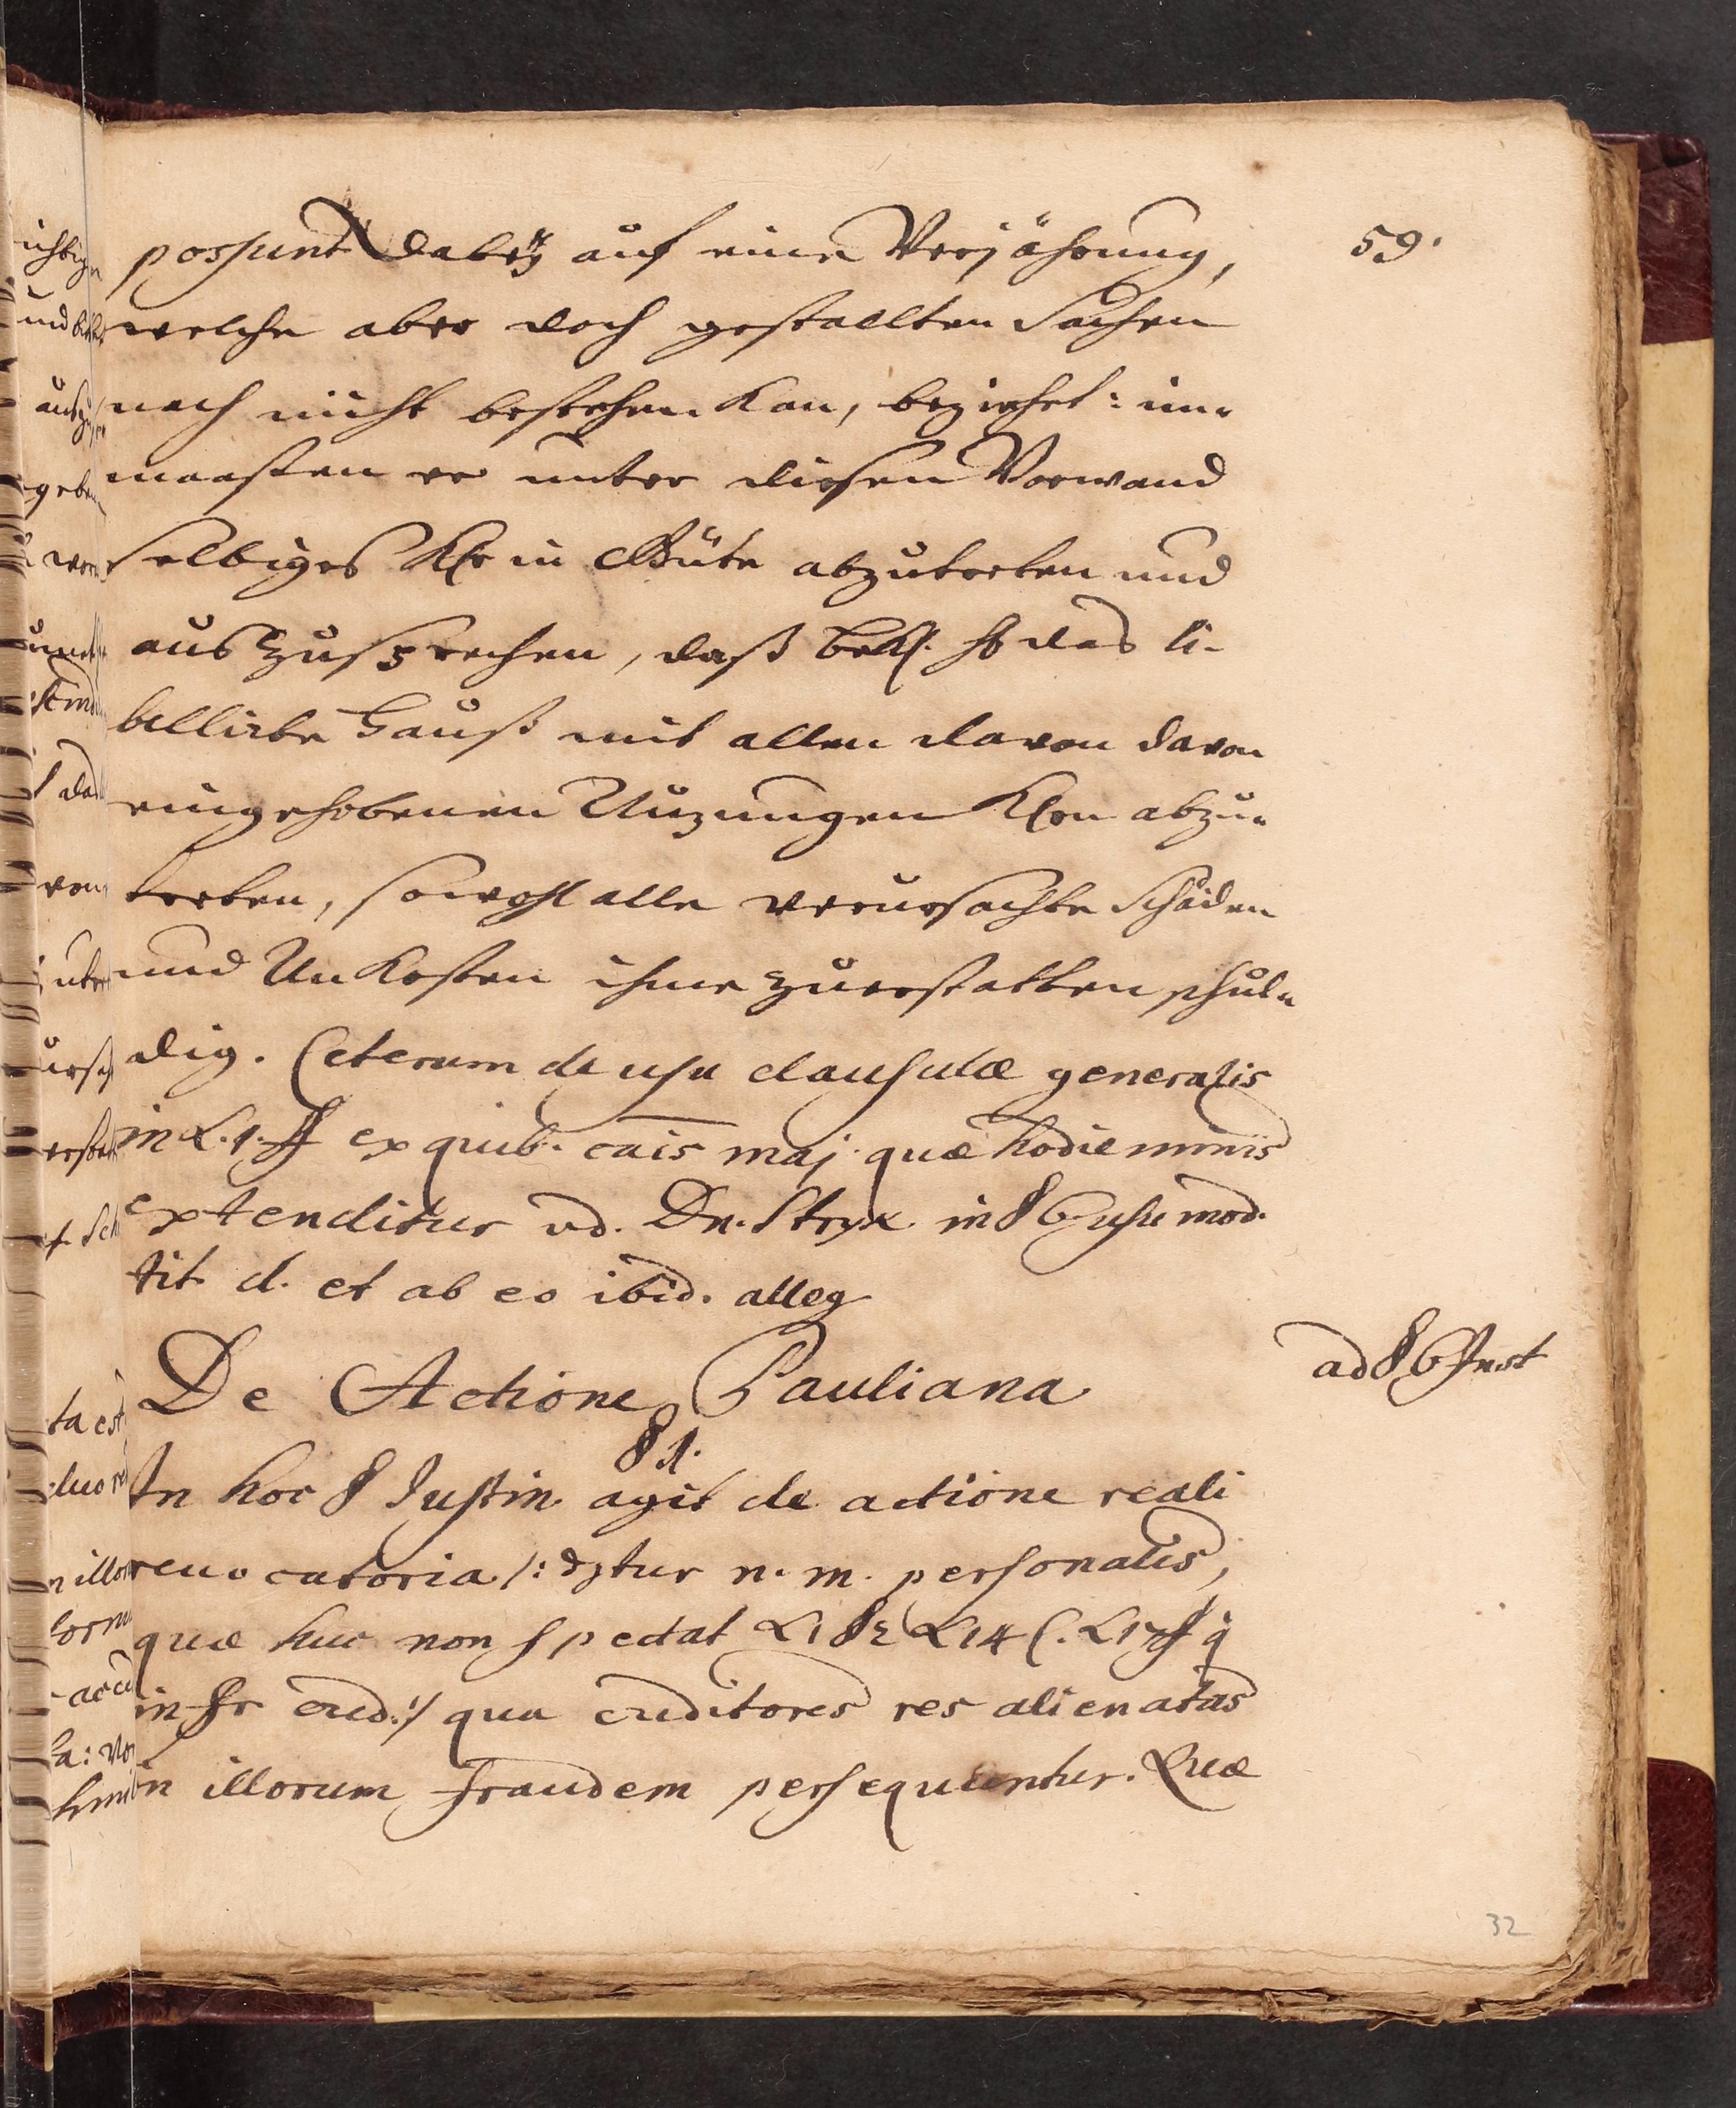 59.
possunt dabey auf eine Verjährung,
welche aber doch gestallten Sachen
nach nicht bestehen kan, beziehet: im-
maasten er unter diesen Vorwand
selbiges Klr in Güte abzutreten und
auszusprechen, daß bekl. das li-
bellirte Hauß mit allen davon davon
eingehobenen Nuzungen Klrn abzu-
tretten, sowohl alle verursachte Schäden
und Unkosten ihme zuerstatten schul-
dig. Ceterum de usu clausulæ generalis
in L. 1. ff ex quib. cais maj. quæ hodie nimis
extenditur vd. Dn. Stryk in § 6 usu mod.
tit d. et ab eo ibid. alleg
De Actione Pauliana
ad § 6 Inst
§ 1.
In hoc § Justin. agit de actione reali
reuocatoria /: dtur n. m. personalis,
quæ huc non spectat L 1 § 2 L 14 C. L 17 ff q
in fr cred. :/ qua creditores res alienatas
in illorum fraudem persequuntur. Quæ
32